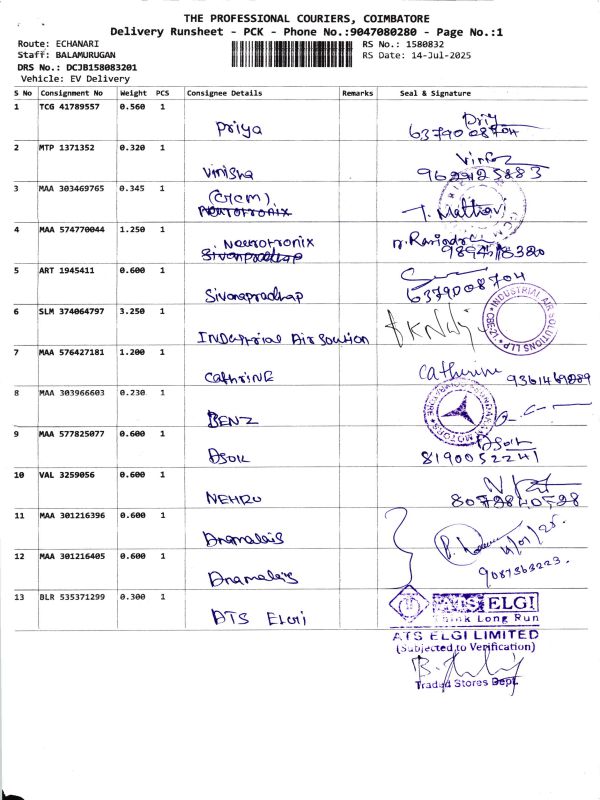 THE PROFESSIONAL COURIERS, COIMBATORE
Delivery Runsheet - PCK - Phone No.:9047080280 - Page No.:1
Route: ECHANARI
RS No.: 1580832
Staff: BALAMURUGAN
RS Date: 14-Jul-2025
DRS No.: DCJB158083201
Vehicle: EV Delivery
S No Consignment No Weight PCS Consignee Details Remarks Seal & Signature
1 TCG 41789557 0.560 1
Priya
6379008704
2 MTP 1371352 0.320 1
Vinisha
9629125883
3 MAA 303469765 0.345 1
(CRCM)
Neurotronix
T. Mathavi
4 MAA 574770044 1.250 1
Neurotronix
Sivanpradhap
5 ART 1945411 0.600 1
Sivanapradhap
6379008704
6 SLM 374064797 3.250 1
Industrial Air Soution
INDUSTRIAL AIR SOLUTIONS LLP
7 MAA 576427181 1.200 1
Cathrine
Catherine
8 MAA 303966603 0.230 1
BENZ
MOTORS
9 MAA 577825077 0.600 1
8190052241
10 VAL 3259056 0.600 1
NEHRU
8072840528
11 MAA 301216396 0.600 1
Anamalais
12 MAA 301216405 0.600 1
Anamalais
9087363223.
13 BLR 535371299 0.300 1
ATS Elgi
ATS ELGI
Think Long Run
ATS ELGI LIMITED
(Subjected to Verification)
Traded Stores Dept.